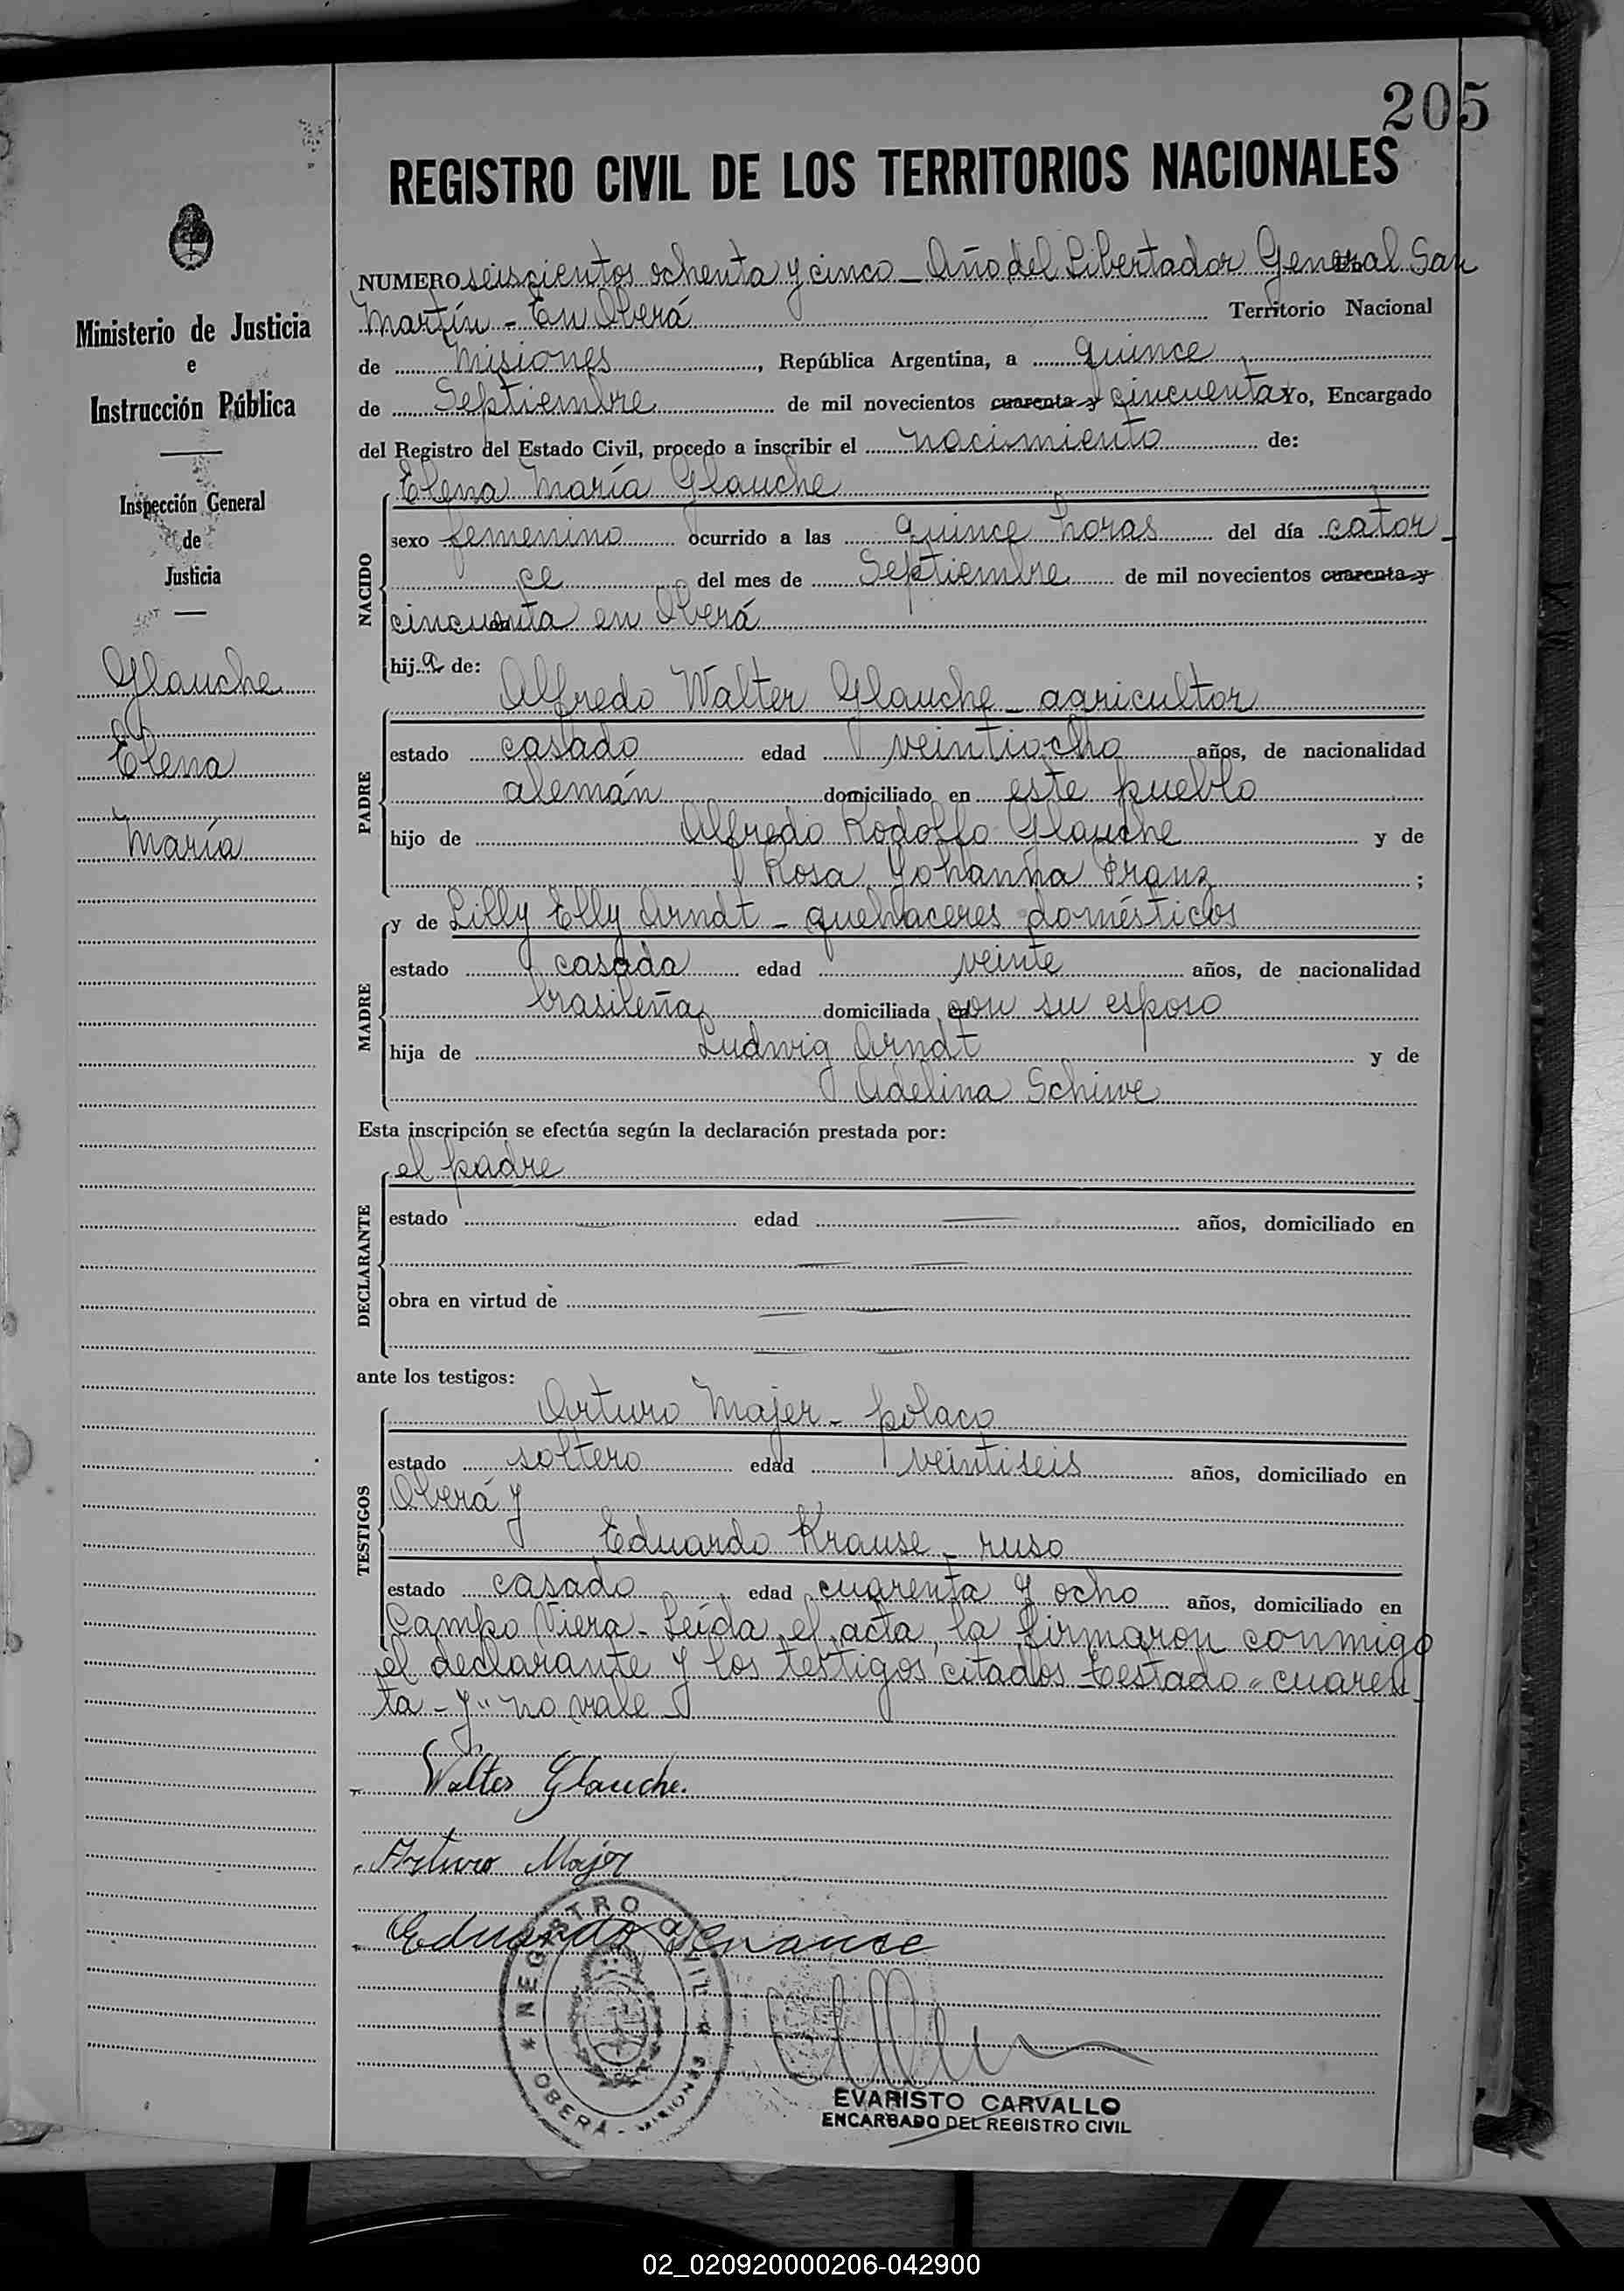 205
REGISTRO CIVIL DE LOS TERRITORIOS NACIONALES
NUMERO seiscientos ochenta y cinco - Año del Libertador General San
Martín - En Oberá Territorio Nacional
de Misiones, República Argentina, a quince
de Septiembre de mil novecientos cuarenta y cincuenta Yo, Encargado
del Registro del Estado Civil, procedo a inscribir el nacimiento de:
Elena María Glauche
NACIDO
sexo femenino ocurrido a las quince horas del día cator-
ce del mes de Septiembre de mil novecientos cuarenta y
cincuenta en Oberá
hija de:
Alfredo Walter Glauche - agricultor
PADRE
estado casado edad veintiocho años, de nacionalidad
alemán domiciliado en este pueblo
hijo de Alfredo Rodolfo Glauche y de
Rosa Yohanna Franz ;
y de Lilly Elly Arndt - quehaceres domésticos
MADRE
estado casada edad veinte años, de nacionalidad
brasileña domiciliada con su esposo
hija de Ludwig Arndt y de
Adelina Schiwe
Esta inscripción se efectúa según la declaración prestada por:
el padre
DECLARANTE
estado edad años, domiciliado en
obra en virtud de
ante los testigos:
Arturo Majer - polaco
TESTIGOS
estado soltero edad veintiseis años, domiciliado en
Oberá y
Eduardo Krause - ruso
estado casado edad cuarenta y ocho años, domiciliado en
Campo Viera - Leída el acta, la firmaron conmigo
el declarante y los testigos citados - testado "cuaren-
ta - y" no vale -
Walter Glauche.
Arturo Majer
Eduardo Krause
REGISTRO CIVIL
* OBERÁ - MISIONES *
EVARISTO CARVALLO
ENCARGADO DEL REGISTRO CIVIL
Ministerio de Justicia
e
Instrucción Pública
Inspección General
de
Justicia
Glauche
Elena
María
02_020920000206-042900